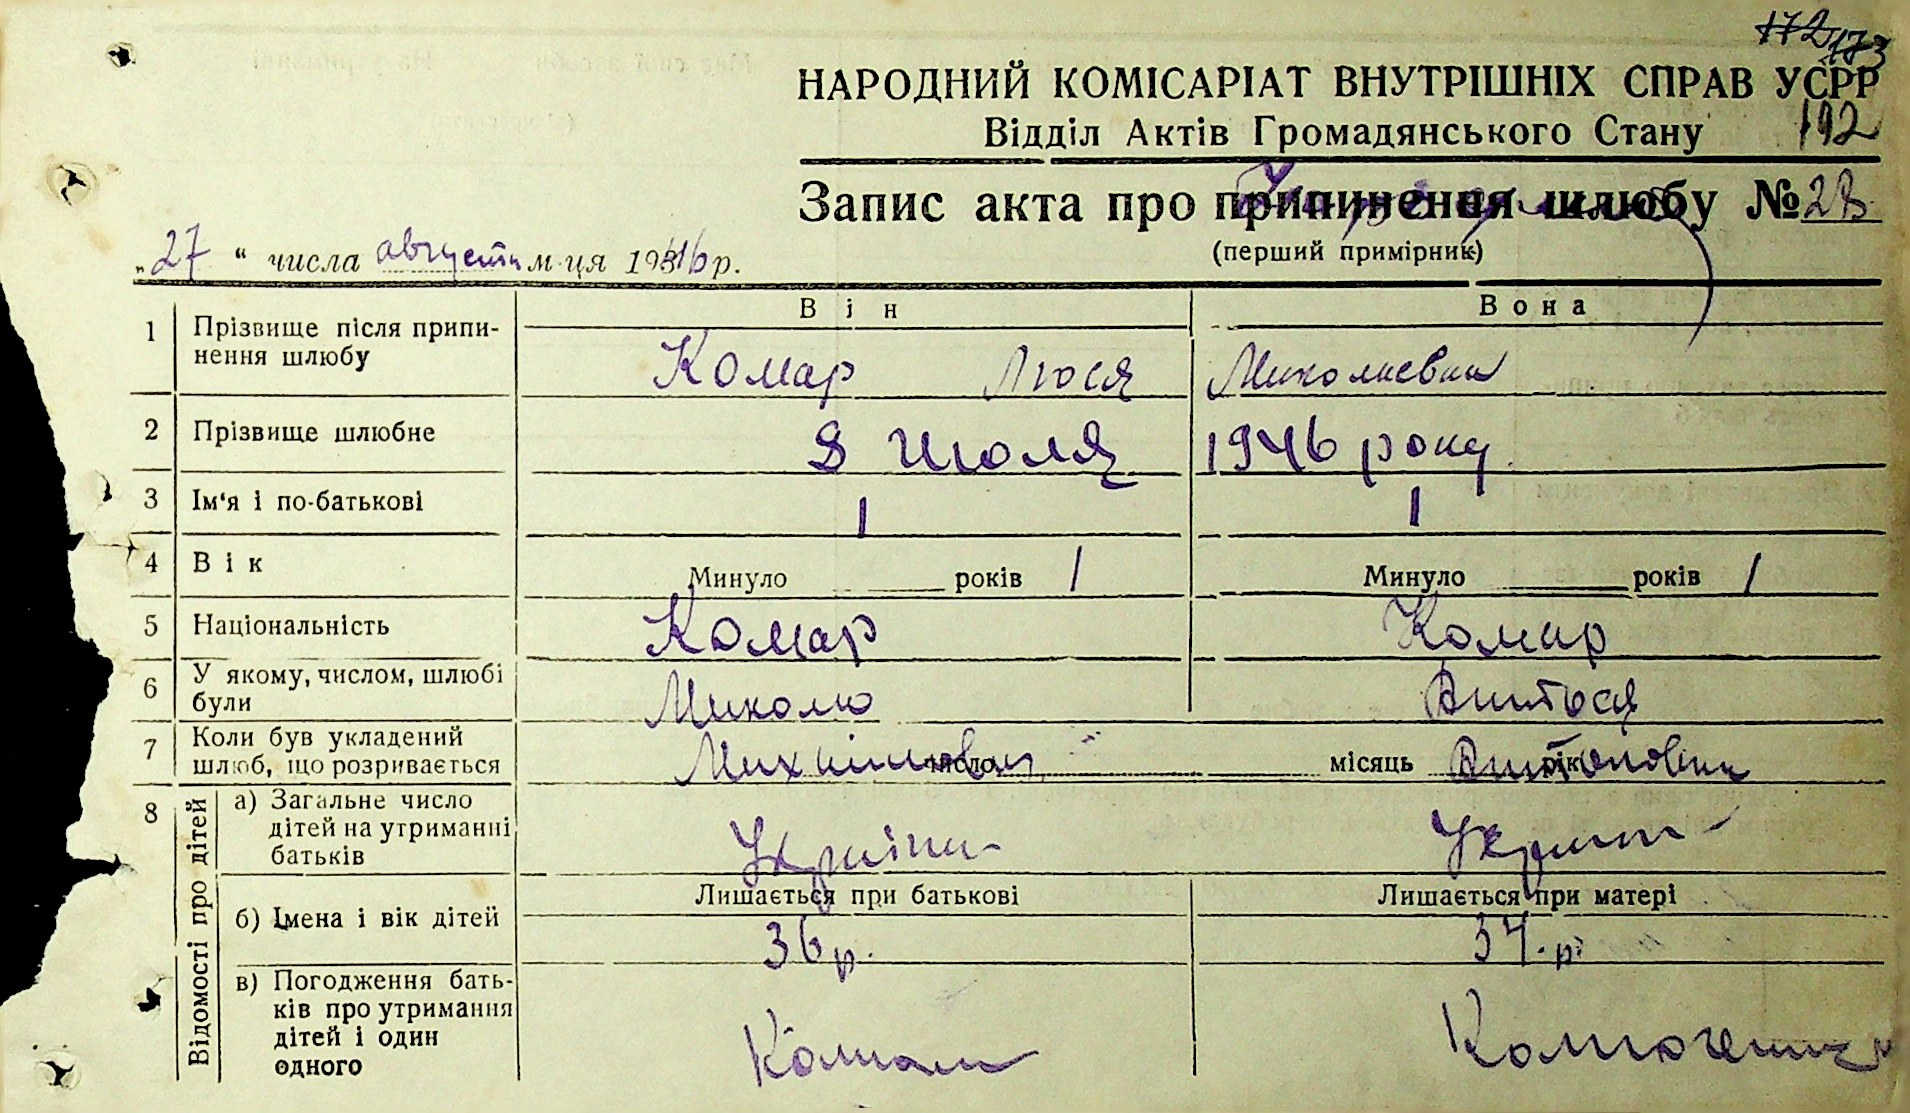 172 173
НАРОДНИЙ КОМІСАРІАТ ВНУТРІШНІХ СПРАВ УСРР
Відділ Актів Громадянського Стану 192
Запис акта про припинення шлюбу № 28
(перший примірник)
„27“ числа августа м-ця 1946 р.
Він Вона
1 Прізвище після припи-
нення шлюбу
Комар Люся Миколаевна
2 Прізвище шлюбне 8 Июля 1946 року
3 Ім'я і по-батькові 1 1
4 Вік Минуло років 1 Минуло років 1
5 Національність Комар Комар
6 У якому, числом, шлюбі
були
Миколо
7 Коли був укладений
шлюб, що розривається
число місяць рік
8 Відомості про дітей
а) Загальне число
дітей на утриманні
батьків
Лишається при батькові Лишається при матері
б) Імена і вік дітей 36 р. 34 р.
в) Погодження бать-
ків про утримання
дітей і один
одного